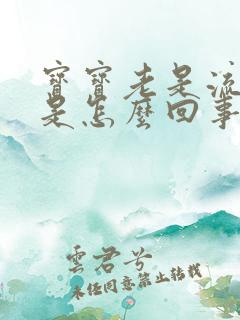 寶寶老是流
是怎麼回事
雲君兮
未经同意禁止转载